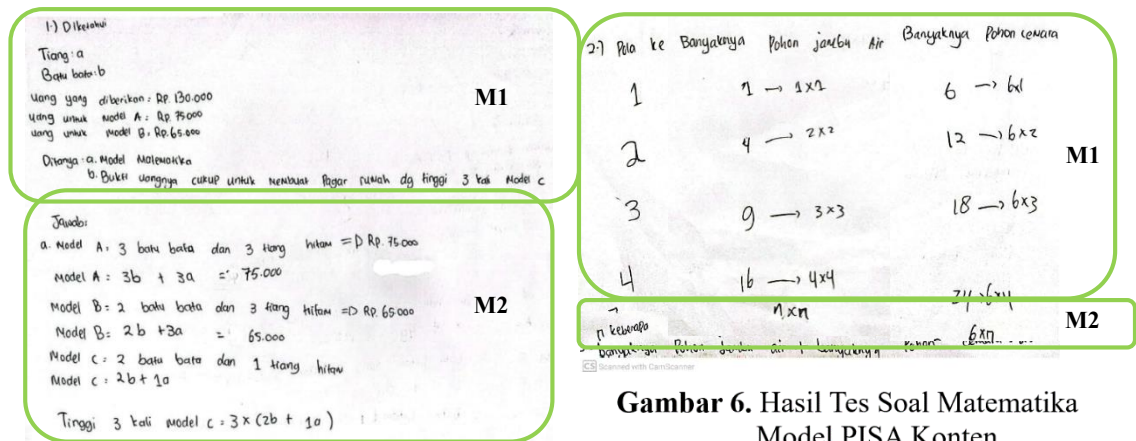 1.) Diketahui
Tiang : a
Batu bata : b
Uang yang diberikan : Rp. 130.000
Uang untuk Model A : Rp. 75000
Uang untuk Model B : Rp. 65.000
Ditanya : a. Model Matematika
b. Bukti uangnya cukup untuk membuat Pagar rumah dg tinggi 3 kali Model C
M1
Jawab:
a. Model A : 3 batu bata dan 3 tiang hitam => Rp. 75.000
Model A : 3b + 3a = 75.000
Model B = 2 batu bata dan 3 tiang hitam => Rp. 65.000
Model B : 2b + 3a = 65.000
Model C : 2 batu bata dan 1 tiang hitam
Model C : 2b + 1a
Tinggi 3 kali model C = 3 x (2b + 1a)
M2
2.) Pola ke Banyaknya Pohon jambu Air Banyaknya Pohon cemara
1 1 → 1x1 6 → 6x1
2 4 → 2x2 12 → 6x2
3 9 → 3x3 18 → 6x3
4 16 → 4x4 24 → 6x4
M1
n keberapa nxn 6xn
M2
CS Scanned with CamScanner
Gambar 6. Hasil Tes Soal Matematika
Model PISA Konten